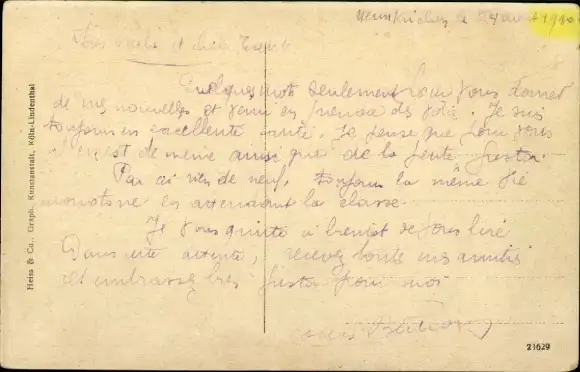 Neunkirchen le 24 août 1920
et chère
Quelques mots seulement pour vous donner
de mes nouvelles et venir en prendre des votre. Je suis
toujours en excellente santé. Je pense que pour vous
il en est de meme ainsi que de la petite
Par ici rien de neuf, toujours la même vie
monotone en attendant la classe.
Je vous quitte a bientot de vous lire
Dans cette attente, recevez toute mes amitiés
et embrassez bien pour moi
Heiss & Co., Graph. Kunstanstalt, Köln-Lindenthal
21629